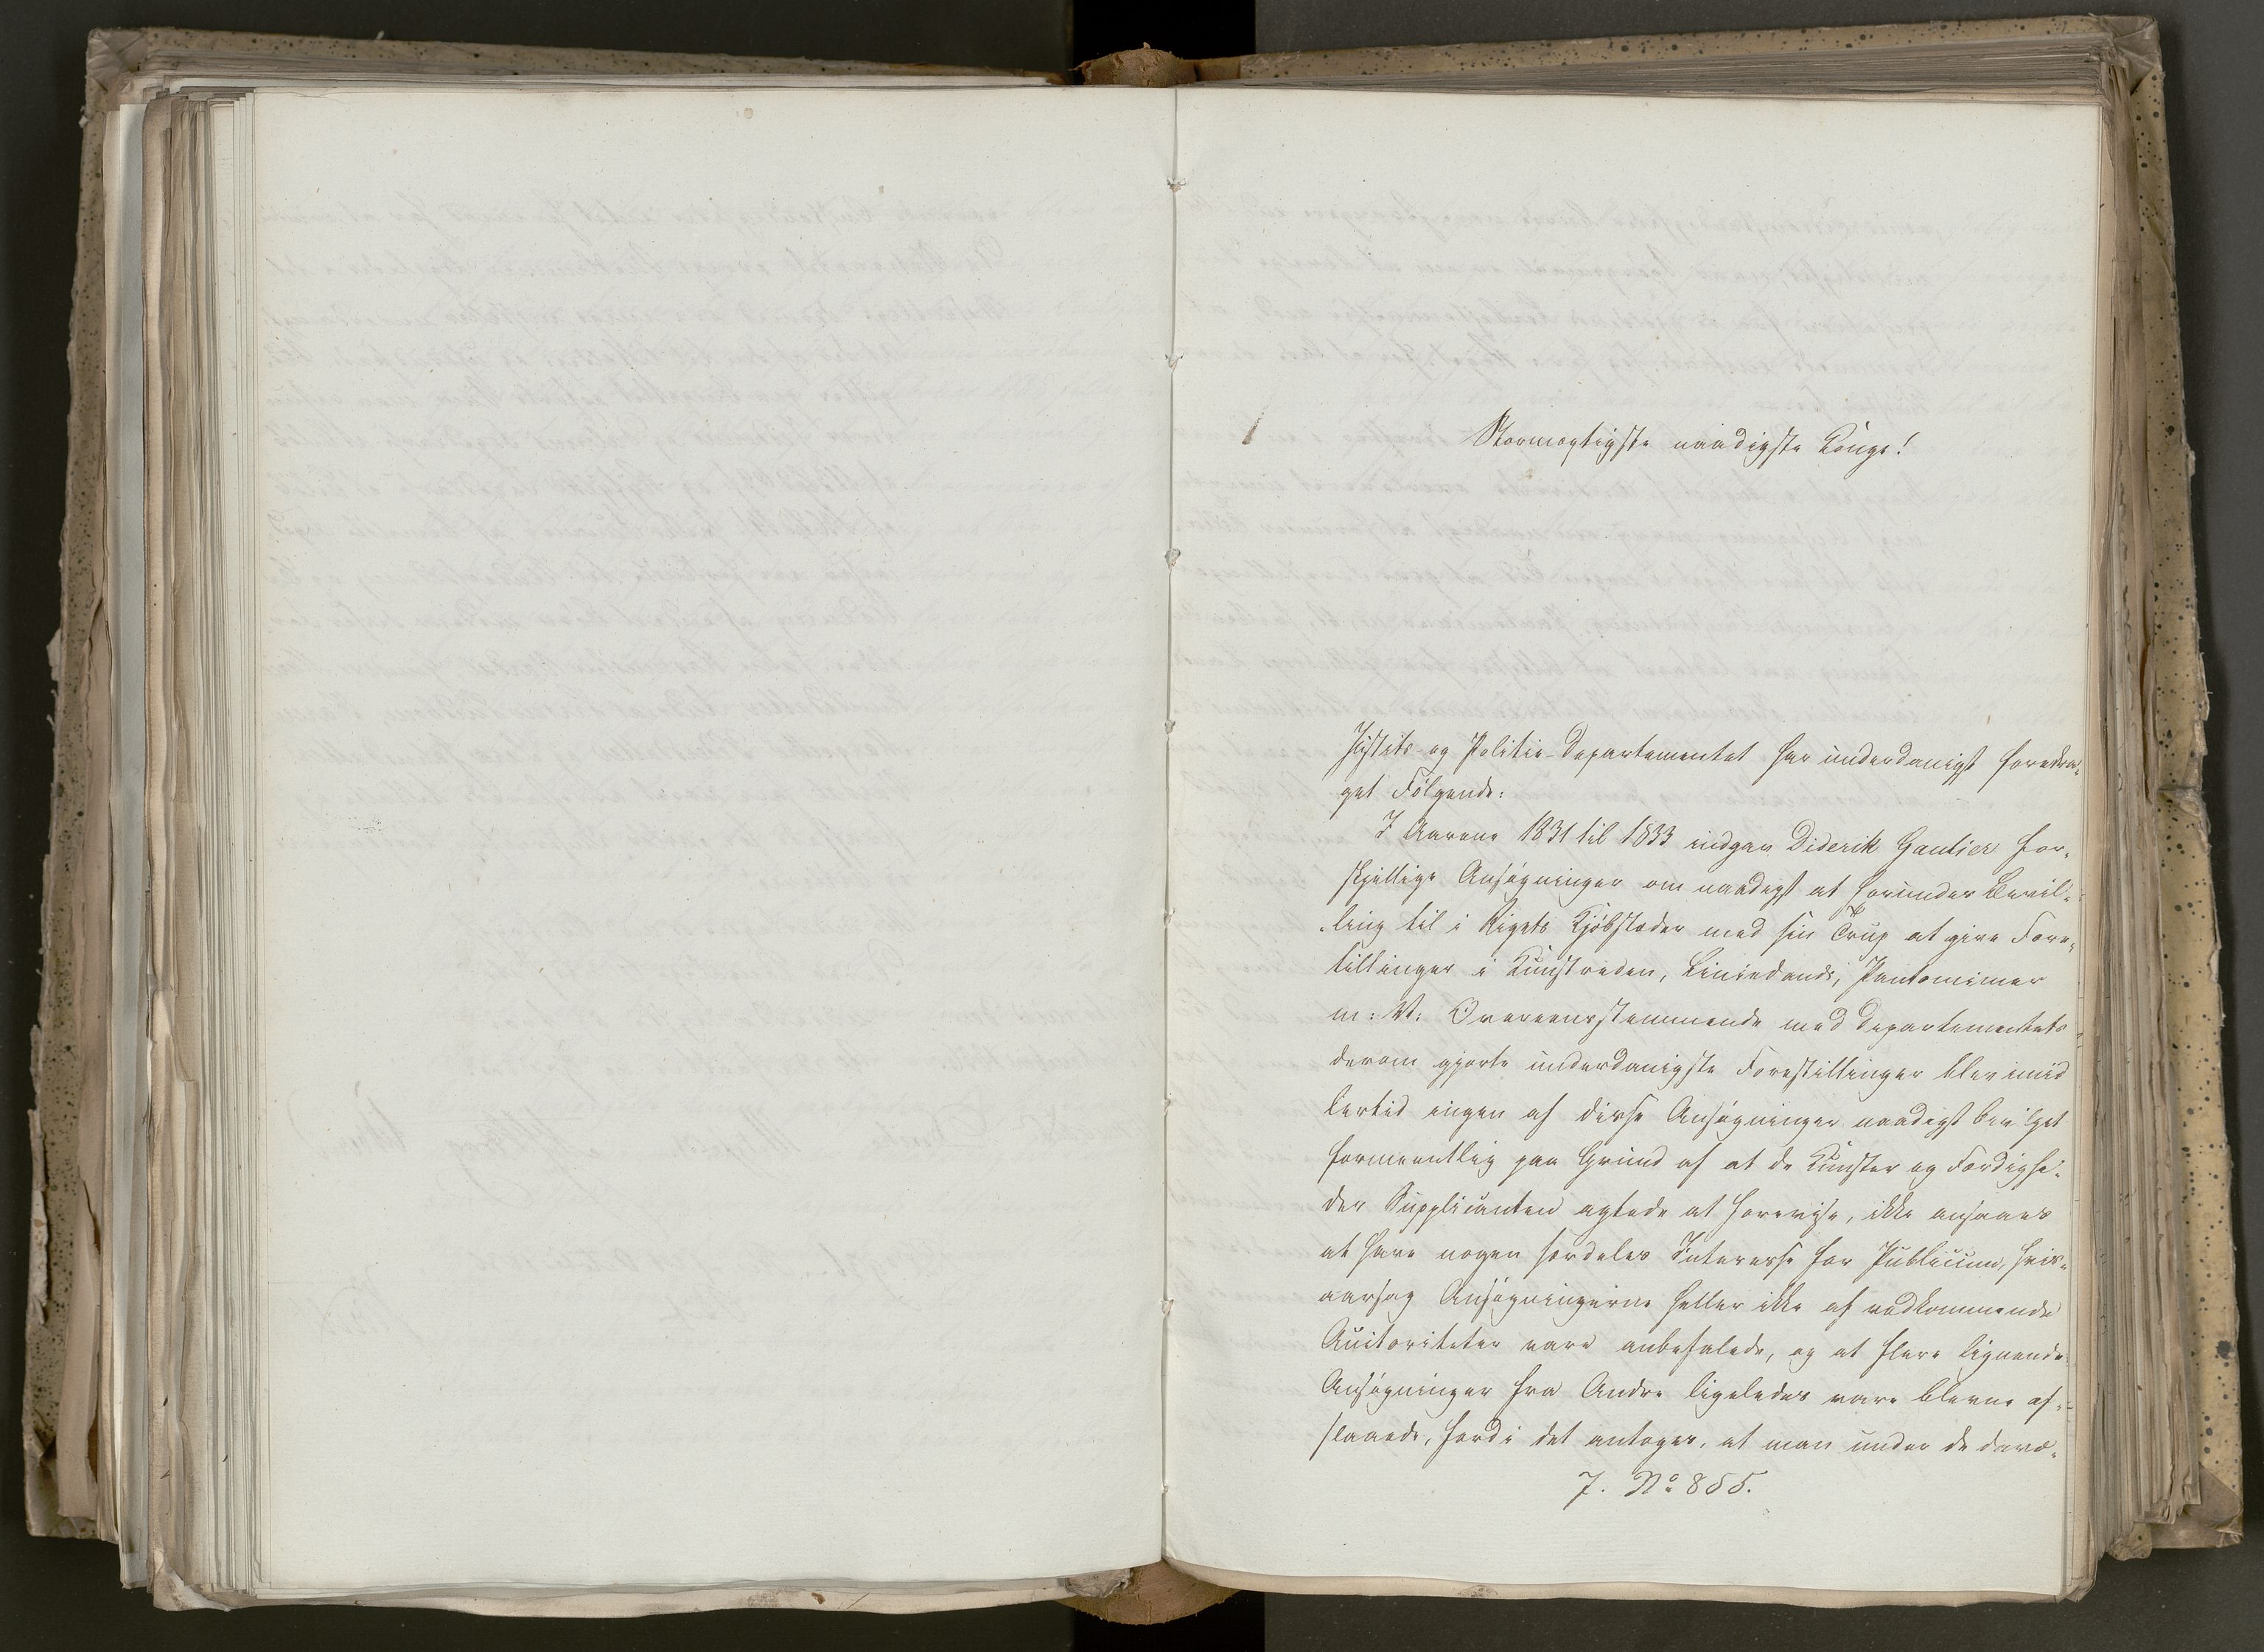 Stormægtigste naadigste Konge!
Justits- og Politie-Departementet har underdanigst foredra-
get Følgende:
I Aarene 1831 til 1833 indgav Diderik Gautier for-
skjellige Ansøgninger om naadigst at forundes Bevil-
ling til i Rigets Kjøbstæder med sin Trup at give Fore-
tillinger i Kunstriden, Liniedands, Pantomimer
m: V: Overeensstemmende med Departementets
derom gjorte underdanigste Forestillinger blev imid
lertid ingen af disse Ansøgninger naadigst bevilget
formeentlig paa Grund af at de Kunster og Færdighe-
der Supplicanten agtede at forevise, ikke ansaaes
at have nogen særdeles Interesse for Publicum, hvis-
aarsag Ansøgningerne heller ikke af vedkommende
Autoriteter vare anbefalede, og at flere lignende
Ansøgninger fra Andre ligeledes vare blevne af-
slaaede, fordi det antoges, at man under de davæ-
J. No 855.